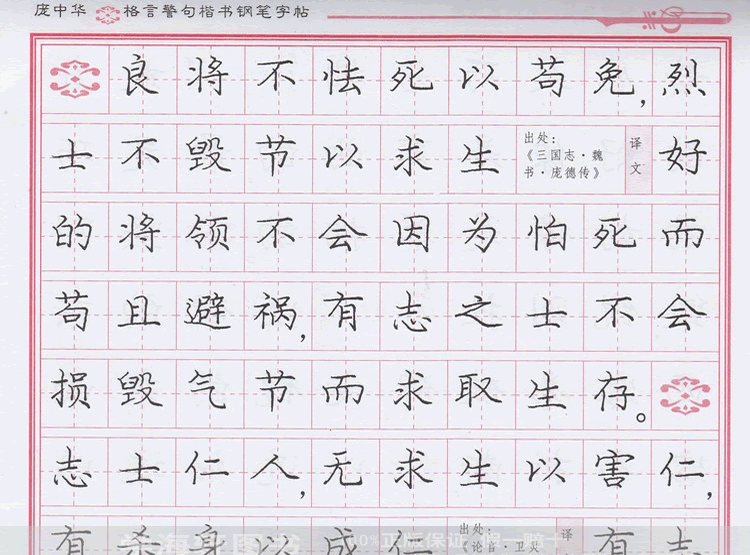 庞中华 格言警句楷书钢笔字帖
良将不怯死以苟免,烈
士不毁节以求生 出处:《三国志·魏书·庞德传》 译文 好
的将领不会因为怕死而
苟且避祸,有志之士不会
损毁气节而求取生存。
志士仁人,无求生以害仁,
有杀身以成仁 出处: 译 有志